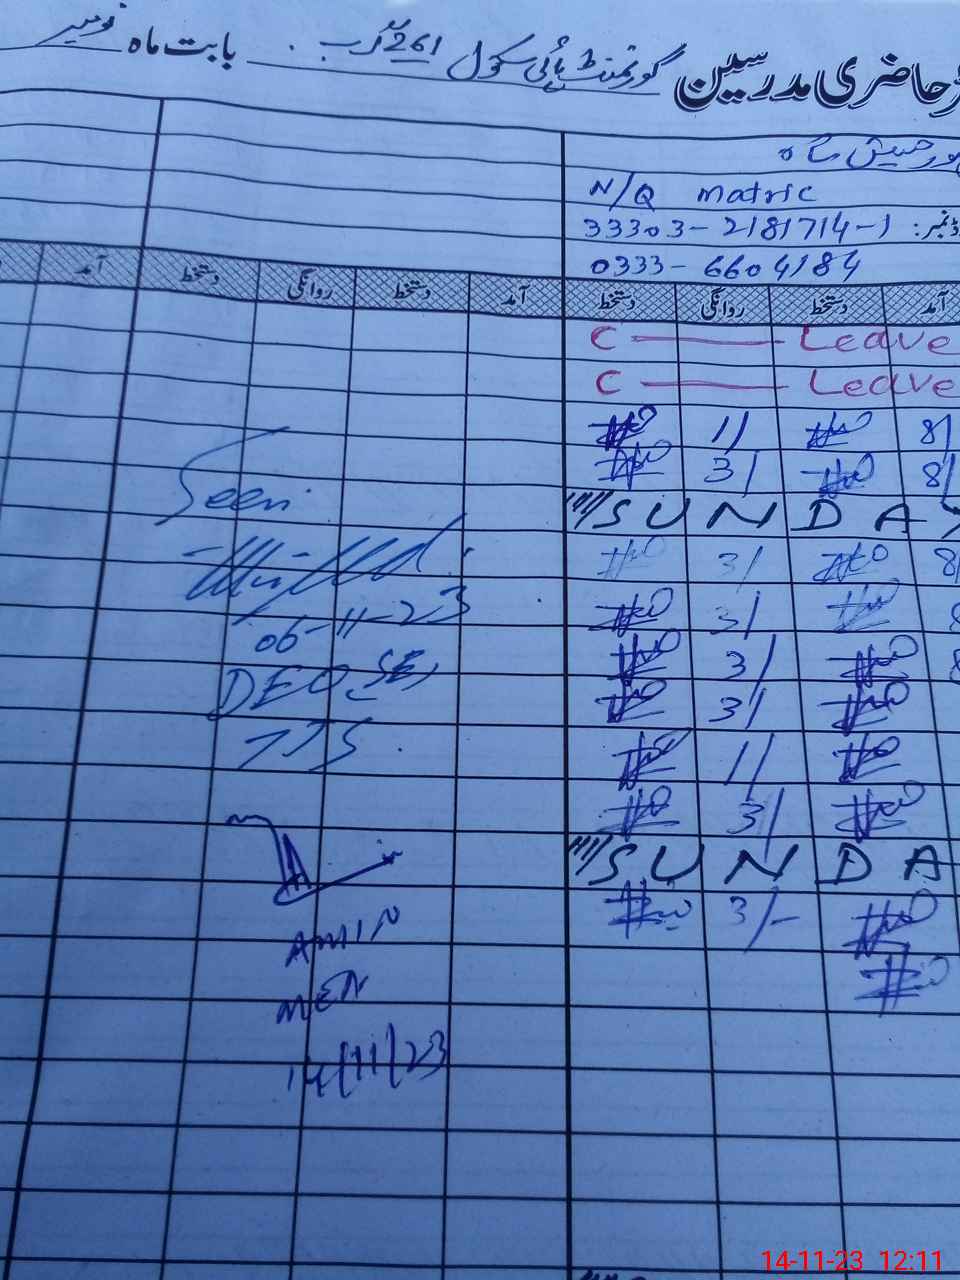 حاضری مدرسین گورنمنٹ ہائی سکول 261 گ ب بابت ماہ نومبر
N/Q matric
33303-2181714-1
0333-6604184
آمد دستخط روانگی دستخط آمد دستخط روانگی دستخط آمد
C Leave
C Leave
11/ 8/
3/ 8/
SUNDAY
3/ 8/
3/ 8
3/ 8
3/
11/
3/
SUNDA
3/-
Seen
06-11-23
DEO (SE)
TTS.
AMIN
MEA
14/11/23
14-11-23 12:11